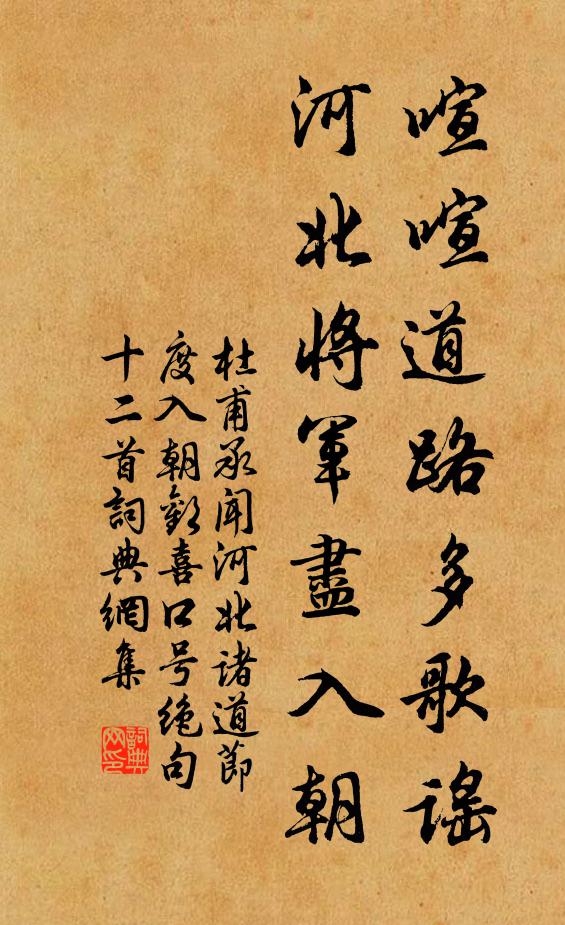 喧喧道路多歌謠
河北將軍盡入朝
杜甫承聞河北諸道節
度入朝歡喜口号绝句
十二首詞典網集
詞典网印